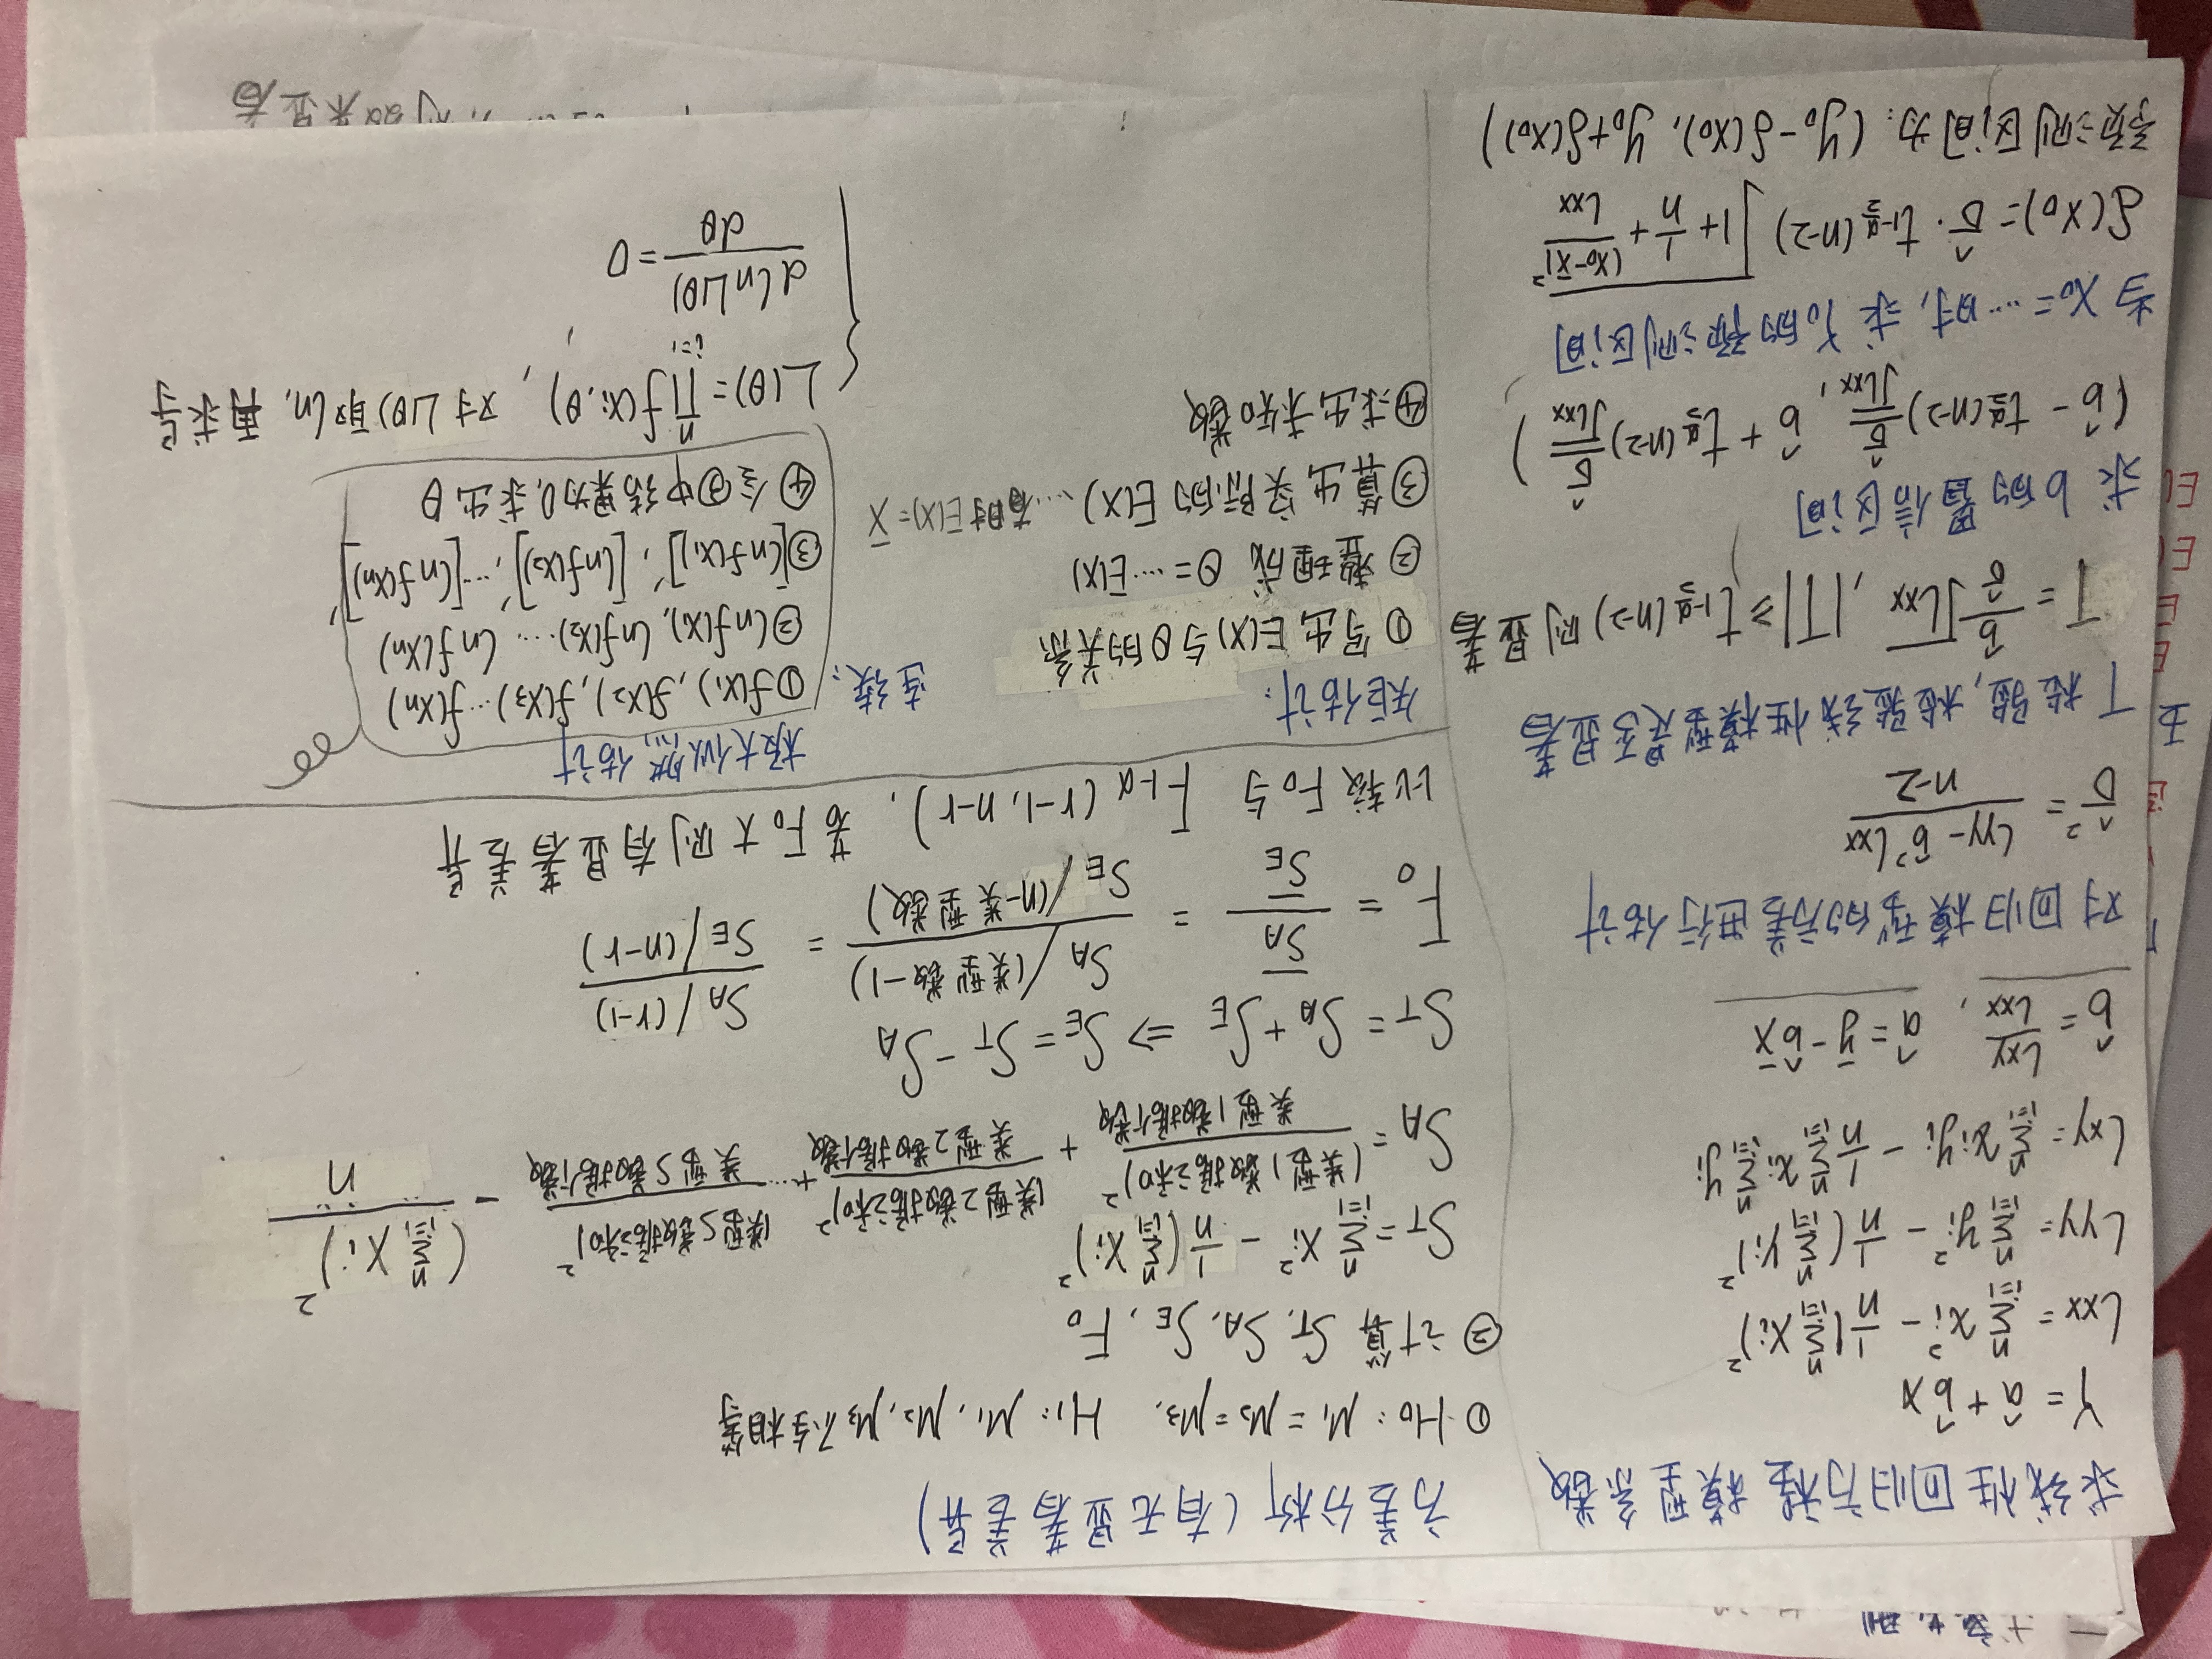 求线性回归方程模型系数
Y = â + b̂x
Lxx = Σ_{i=1}^{n} xi² - 1/n(Σ_{i=1}^{n} xi)²
Lyy = Σ_{i=1}^{n} yi² - 1/n(Σ_{i=1}^{n} yi)²
Lxy = Σ_{i=1}^{n} xiyi - 1/n Σ_{i=1}^{n} xi Σ_{i=1}^{n} yi
b̂ = Lxy/Lxx, â = ȳ - b̂x̄
对回归模型的方差进行估计
σ̂² = (Lyy - b̂²Lxx)/(n-2)
T检验,检验线性模型是否显著
T = b̂/σ̂ √Lxx, |T| ≥ t_{1-α/2}(n-2) 则显著
求b的置信区间
(b̂ - t_{α/2}(n-2) σ̂/√Lxx, b̂ + t_{α/2}(n-2) σ̂/√Lxx)
当 X₀ = … 时, 求Y₀的预测区间
δ(x₀) = σ̂ · t_{1-α/2}(n-2) √(1 + 1/n + (x₀-x̄)²/Lxx)
预测区间为: (y₀ - δ(x₀), y₀ + δ(x₀))
方差分析 (有无显著差异)
① H₀: μ₁ = μ₂ = μ₃, H₁: μ₁, μ₂, μ₃ 不全相等
② 计算 S_T, S_A, S_E, F₀
S_T = Σ_{i=1}^{n} xi² - 1/n(Σ_{i=1}^{n} xi)²
S_A = (类型1数据之和)²/类型1数据个数 + (类型2数据之和)²/类型2数据个数 + … (类型S数据之和)²/类型S数据个数 - (Σ_{i=1}^{n} Xi)²/n
S_T = S_A + S_E ⇒ S_E = S_T - S_A
F₀ = S̄_A/S̄_E = S_A/(类型数-1) / S_E/(n-类型数) = S_A/(r-1) / S_E/(n-r)
比较F₀与 F_{1-α}(r-1, n-r), 若F₀大则有显著差异
矩估计:
① 写出E(X)与θ的关系
② 整理成 θ = …E(X)
③ 算出实际的E(X)、…有时E(X)=X̄
④ 求出未知数
极大似然估计
连续:
① f(x₁), f(x₂), f(x₃)…f(xn)
② lnf(x₁), lnf(x₂)… lnf(xn)
③ [lnf(x₁)]', [lnf(x₂)]', …[lnf(xn)]'
④ 令③中结果为0, 求出θ
L(θ) = Π_{i=1}^{n} f(xi, θ), 对L(θ)取ln, 再求导
dlnL(θ)/dθ = 0